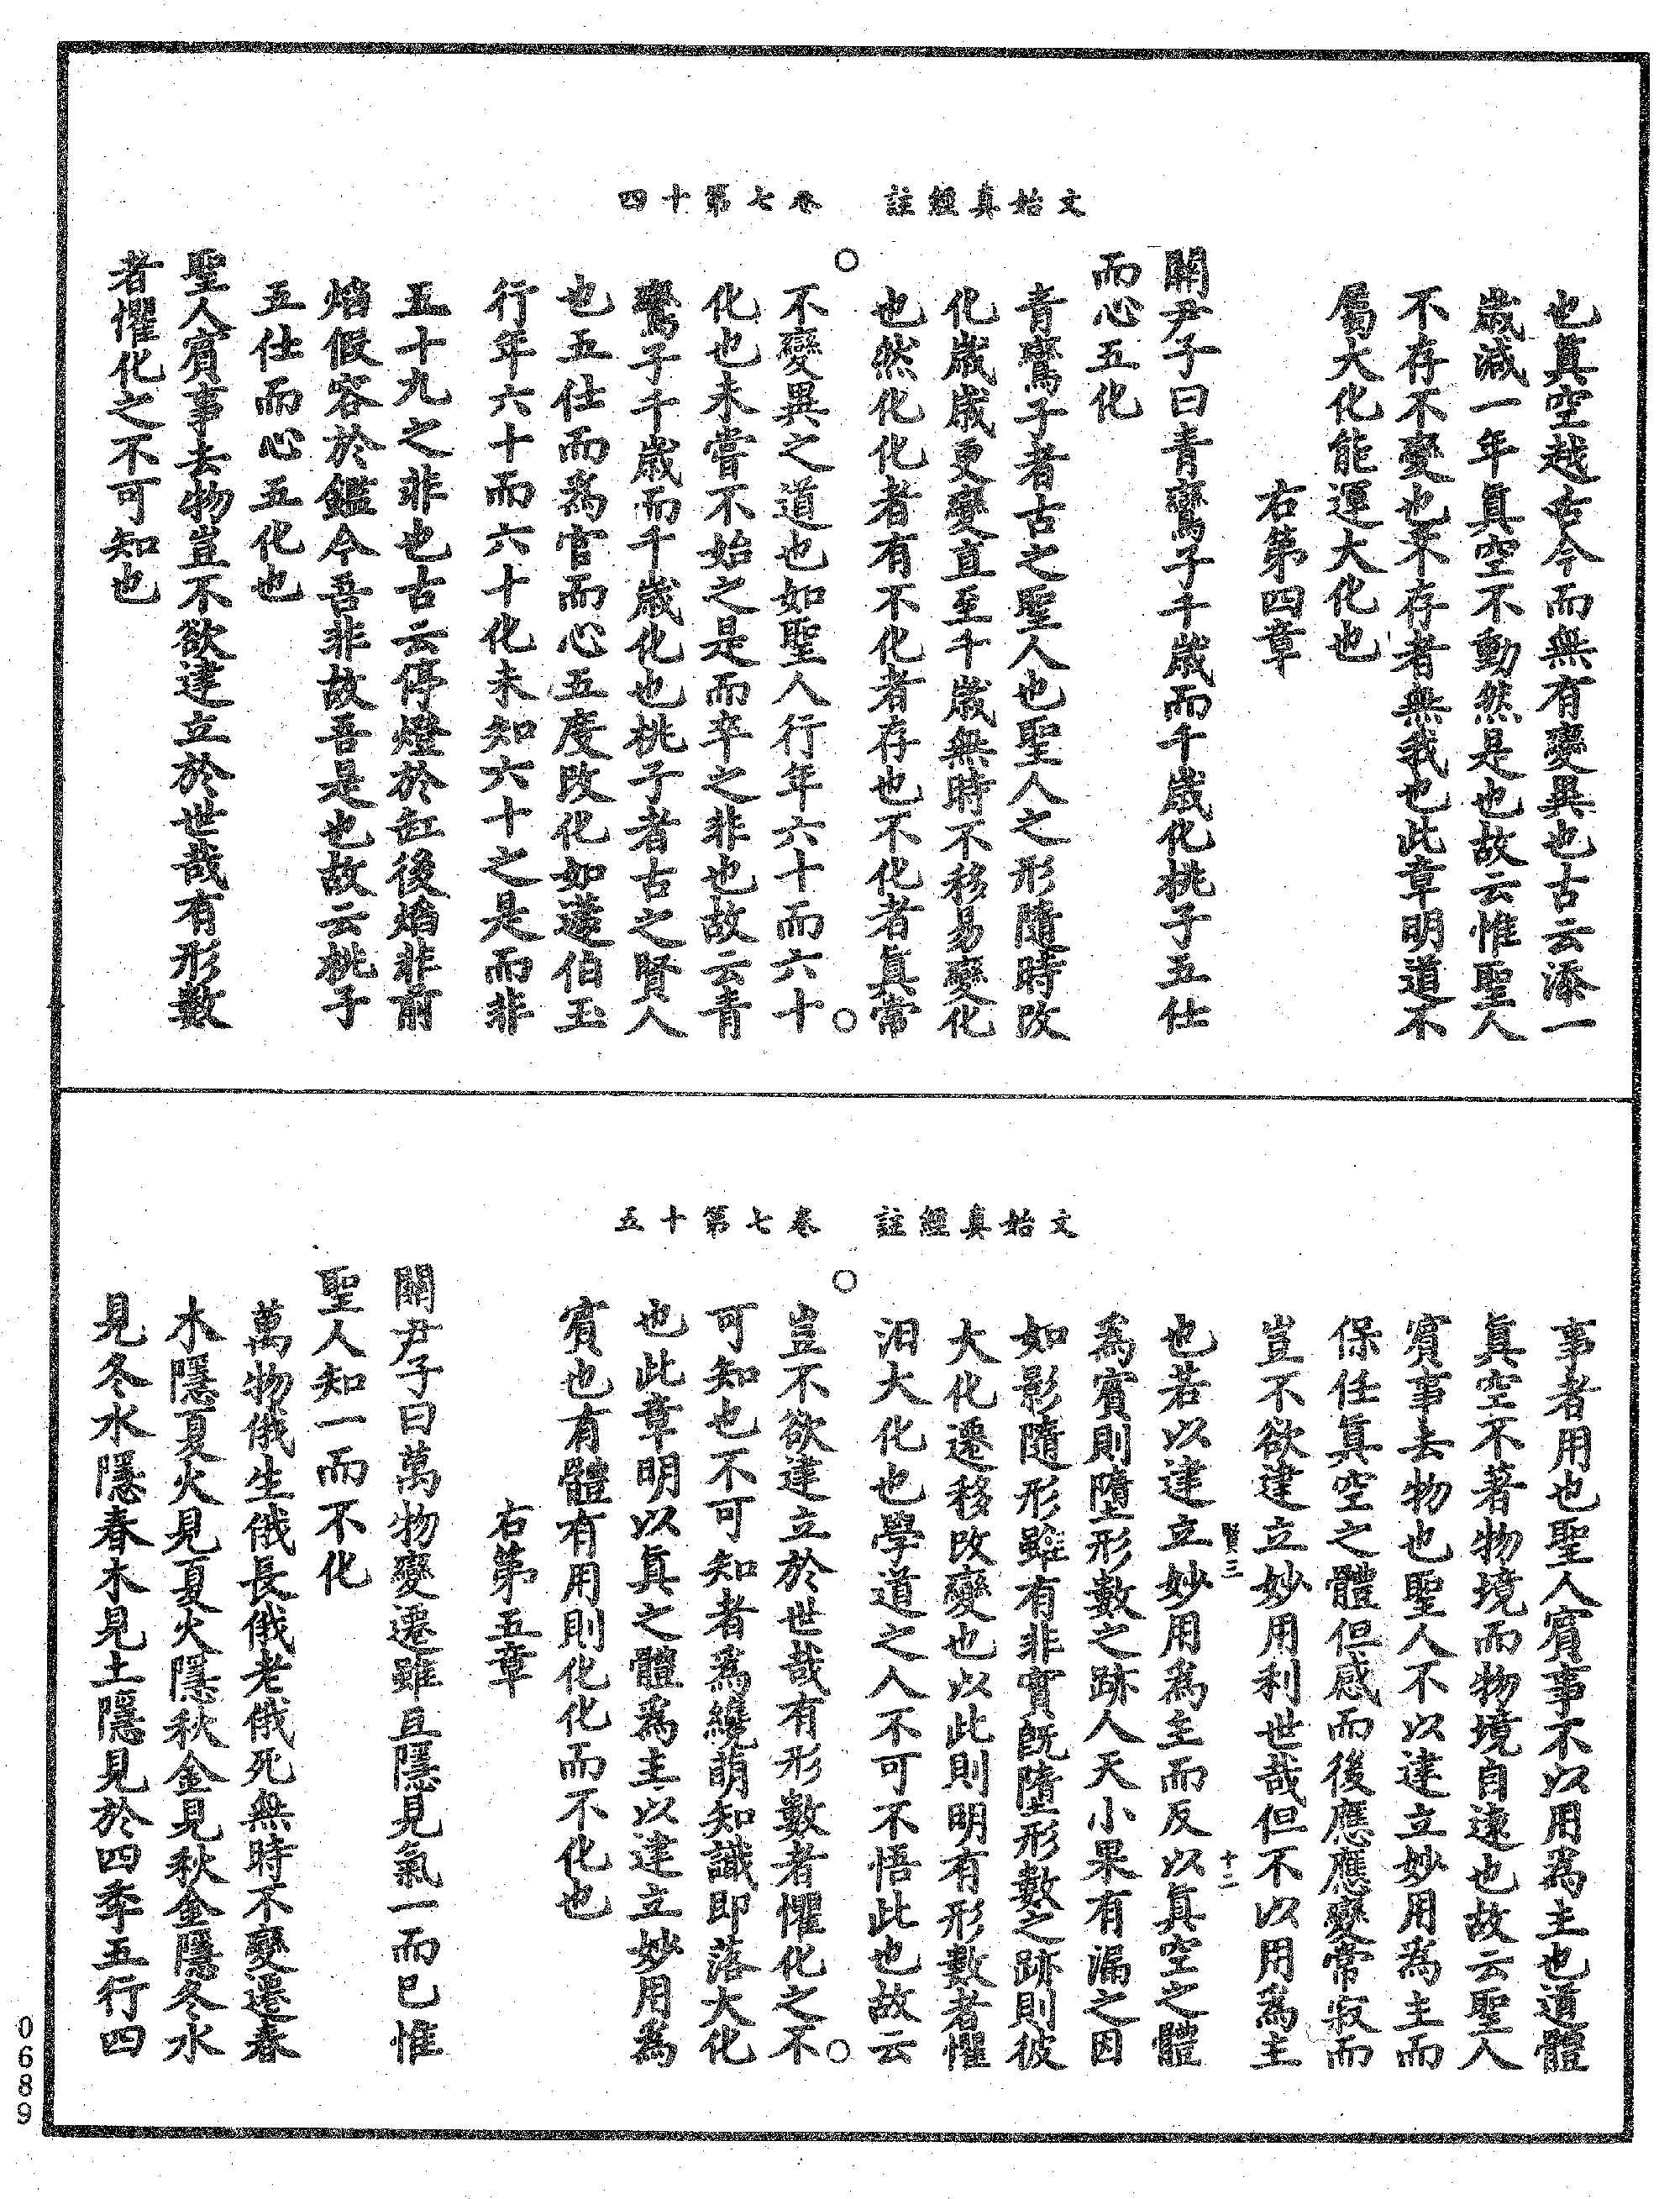 文始真經註　卷七第十四
也眞空越古今而無有變異也古云添一
歲減一年真空不動然是也故云惟聖人
不存不變也不存者無我也此章明道不
屬大化能運大化也
右第四章
關尹子曰青鸞子千歲而千歲化桃子五仕
而心五化
青鸞子者古之聖人也聖人之形隨時改
化歲歲更變直至千歲無時不移易變化
也然化化者有不化者存也不化者眞常
不變異之道也如聖人行年六十而六十
化也未嘗不始之是而卒之非也故云青
鸞子千歲而千歲化也桃子者古之賢人
也五仕而為官而心五度改化如蘧伯玉
行年六十而六十化未知六十之是而非
五十九之非也古云停燈於缸後焰非前
焰假容於鑑今吾非故吾是也故云桃子
五仕而心五化也
聖人賓事去物豈不欲建立於世哉有形數
者懼化之不可知也
文始真經註　卷七第十五
事者用也聖人賓事不以用為主也道體
眞空不著物境而物境自遠也故云聖人
賓事去物也聖人不以建立妙用為主而
保任真空之體但感而後應應變常寂而
豈不欲建立妙用利世哉但不以用為主
賢三　十二
也若以建立妙用為主而反以真空之體
為賓則墮形數之跡人天小果有漏之因
如影隨形雖有非實旣墮形數之跡則彼
大化遷移改變也以此則明有形數者懼
汨大化也學道之人不可不悟此也故云
豈不欲建立於世哉有形數者懼化之不
可知也不可知者為纔萌知識即落大化
也此章明以眞之體為主以建立妙用為
賓也有體有用則化化而不化也
右第五章
關尹子曰萬物變遷雖互隱見氣一而已惟
聖人知一而不化
萬物俄生俄長俄老俄死無時不變遷春
木隱夏火見夏火隱秋金見秋金隱冬水
見冬水隱春木見土隱見於四季五行四
0689